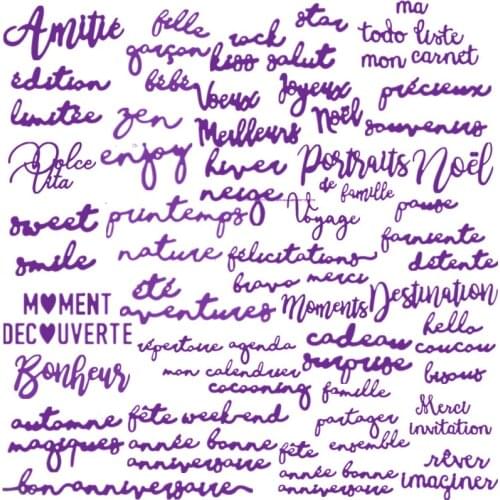 Amitié
fille
garçon
rock
kiss
star
salut
ma
todo liste
mon carnet
édition
limitée
bébé
zen
Voeux
Meilleurs
Joyeux
Noël
précieux
souvenirs
Dolce
Vita
enjoy
hiver
neige
Portraits
de famille
Noël
Voyage
pause
sweet
smile
printemps
nature
félicitations
bravo merci
farniente
détente
MOMENT
DECOUVERTE
été
aventures
Moments
Destination
hello
coucou
bisous
Bonheur
répertoire agenda
mon calendrier
cocooning
cadeau
surprise
famille
partager
ensemble
Merci
invitation
automne
magiques
fête week-end
année bonne
anniversaire
bon anniversaire
fête
année bonne
anniversaire
rêver
imaginer